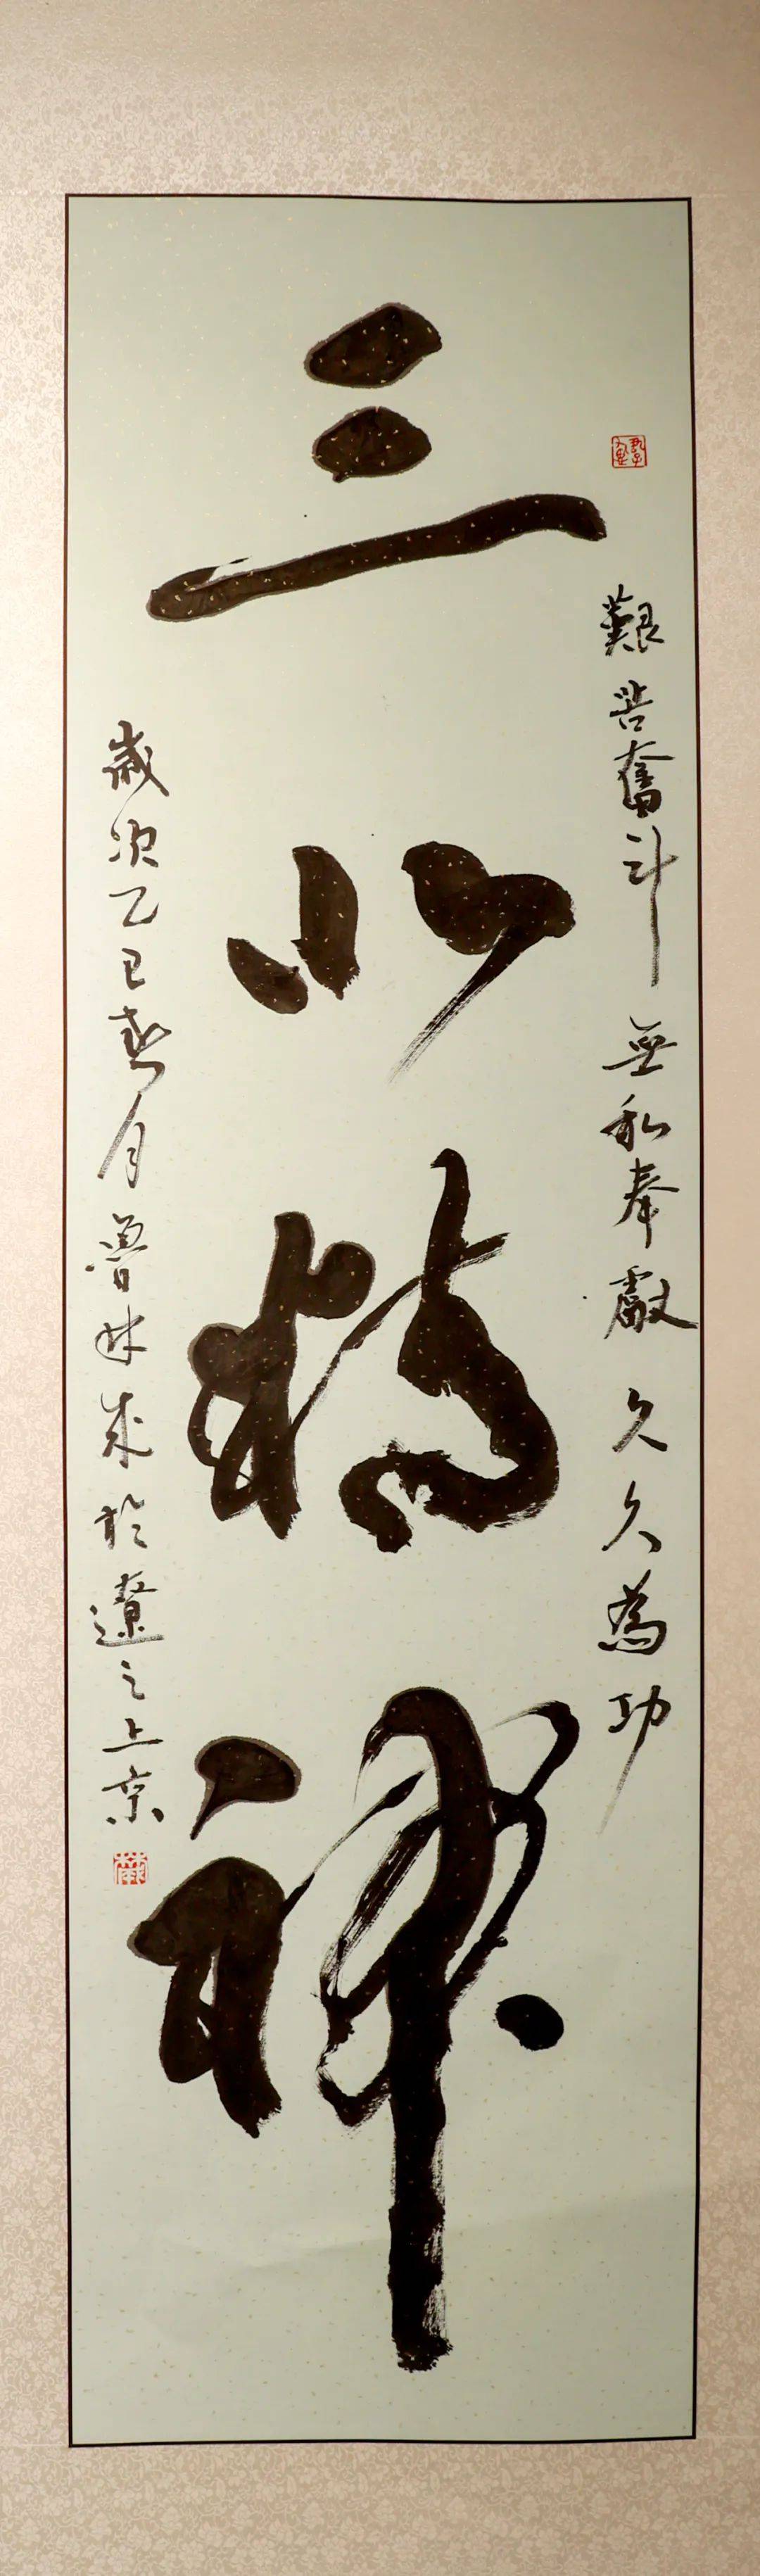 艱苦奮斗 無私奉獻 久久為功
三北精神
歲次乙巳春月魯林成於遼之上京